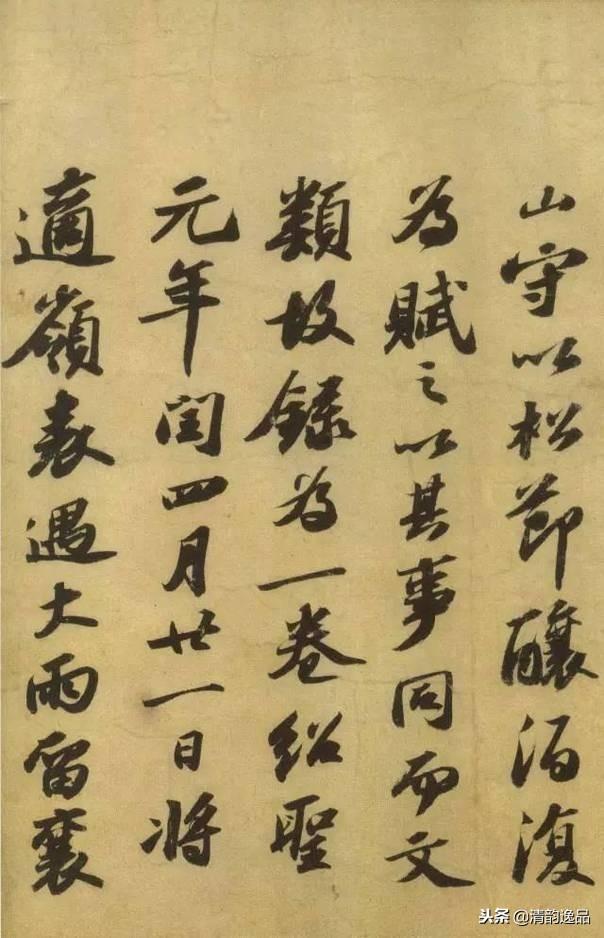 山守以松節釀酒復
為賦之以其事同而文
類故録為一卷紹聖
元年閏四月廿一日將
適嶺表遇大雨留襄
头条 @清韵逸品